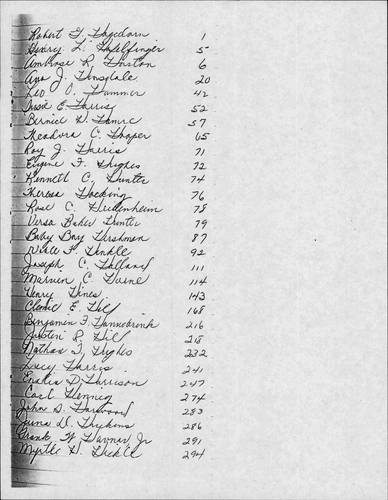 Robert G. Hagedorn 1
Henry L. Hafelfinger 5
Ambrose R. Horton 6
Ana J. Hinsdale 20
Leo O. Hammer 42
Jessie E. Harris 52
Bernice H. Hamre 57
Theodora C. Hooper 65
Roy J. Harris 71
Eugene F. Hughes 72
Kenneth C. Hunter 74
Theresa Hocking 76
Rose C. Heidenheim 78
Versa Baker Hunter 79
Baby Boy Hershman 87
F. Hinkle 92
Joseph C. Holland 111
Marvin C. Horne 114
Henry Hines 143
E. Hill 168
Benjamin F. 216
R. Hill 218
Nathan T. Hughes 232
Lucy Harris 241
D. Harrison 247
Carl Hennig 274
John D. Harwood 283
286
Frank W. Havner Jr 291
Myrtle H. Heckle 294